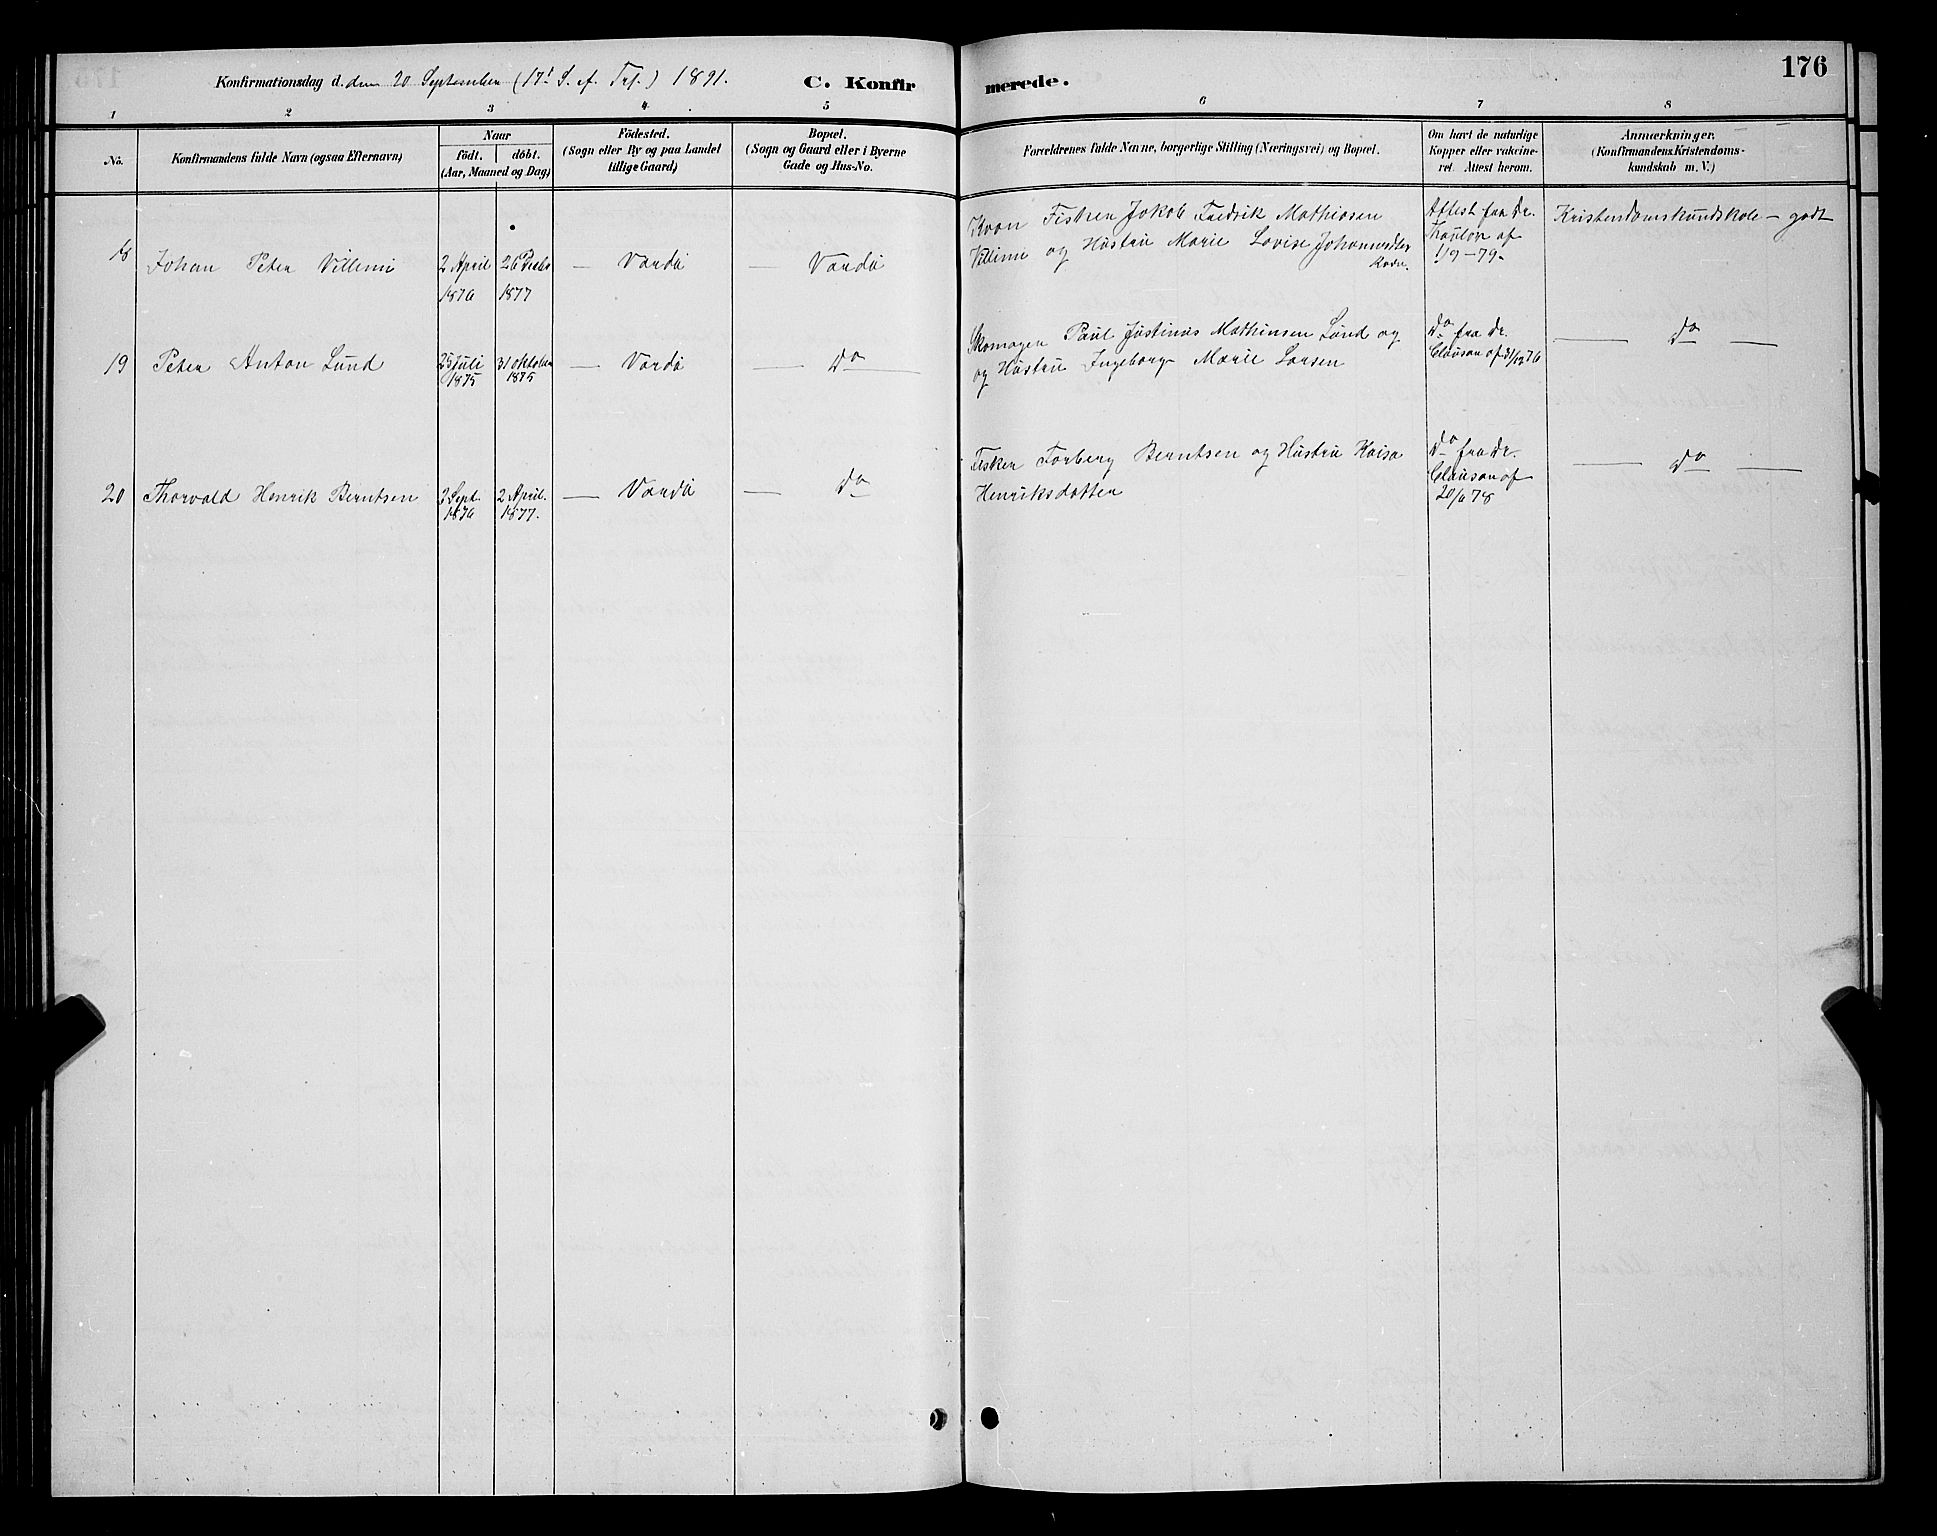 176
Konfirmationsdag d. den 20 September (17. S. ef. Tr.) 1891. C. Konfirmerede.
1 2 3 4 5 6 7 8
No.
Konfirmandens fulde Navn (ogsaa Efternavn)
Naar
födt. döbt.
(Aar, Maaned og Dag)
Födested.
(Sogn eller By og paa Landet
tillige Gaard)
Bopæl.
(Sogn og Gaard eller i Byerne
Gade og Hus-No.
Forældrenes fulde Navne, borgerlige Stilling (Næringsvei) og Bopæl.
Om havt de naturlige
Kopper eller vakcine-
ret. Attest herom.
Anmærkninger.
(Konfirmandens Kristendoms-
kundskab m. V.)
18 Johan Peter Villimi
2 April
1876
26
1877
— Vardö
— Vardö
Kvæn Fisker Jokob Fredrik Mathiasen
Villimi og Hustru Marie Lovise
Attest fra Dr.
af
1/9 - 79.
Kristendomskundskab - godt
19 Peter Anton Lund
25 Juli
1875
31 Oktober
1875
— Vardö
— Do —
Skomager Paul Justinus Mathinsen Lund og
og Hustru Ingeborg Marie Larsen
Do fra Dr.
Clausen af 31/12 76
— Do —
20 Thorvald Henrik Berntsen
3 Sept.
1876
2 April.
1877.
— Vardö
— Do
Fisker Torberg Berntsen og Hustru Kaisa
Henriksdatter
Do fra Dr.
Clausen af
20/6 78
— Do —